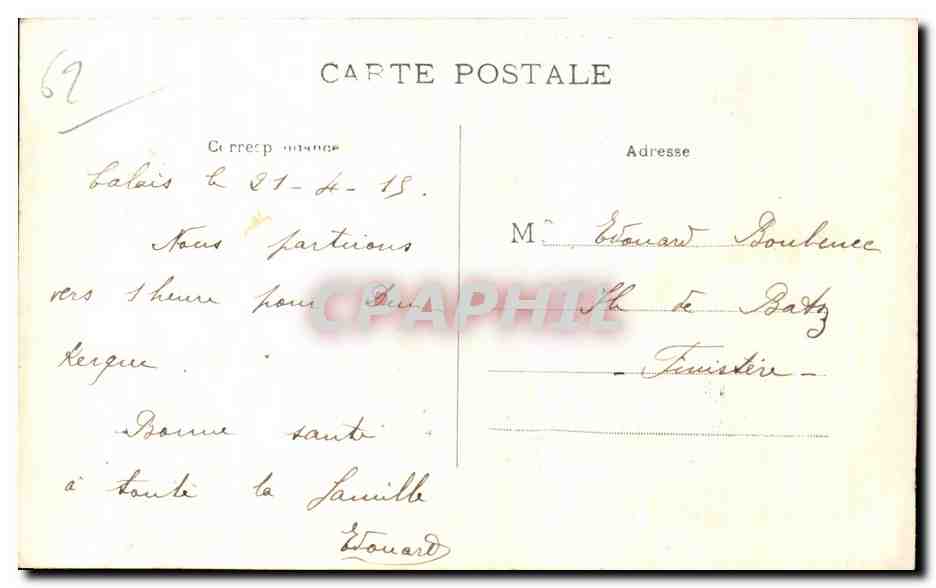 62
CARTE POSTALE
Correspondance
Calais le 21-4-15.
Nous partirons
vers 1 heure pour Dun
Kerque.
Bonne santé
à toute la famille
Edouard
Adresse
M. Edouard Boubenec
Ile de Batz
- Finistère -
CPAPHIL